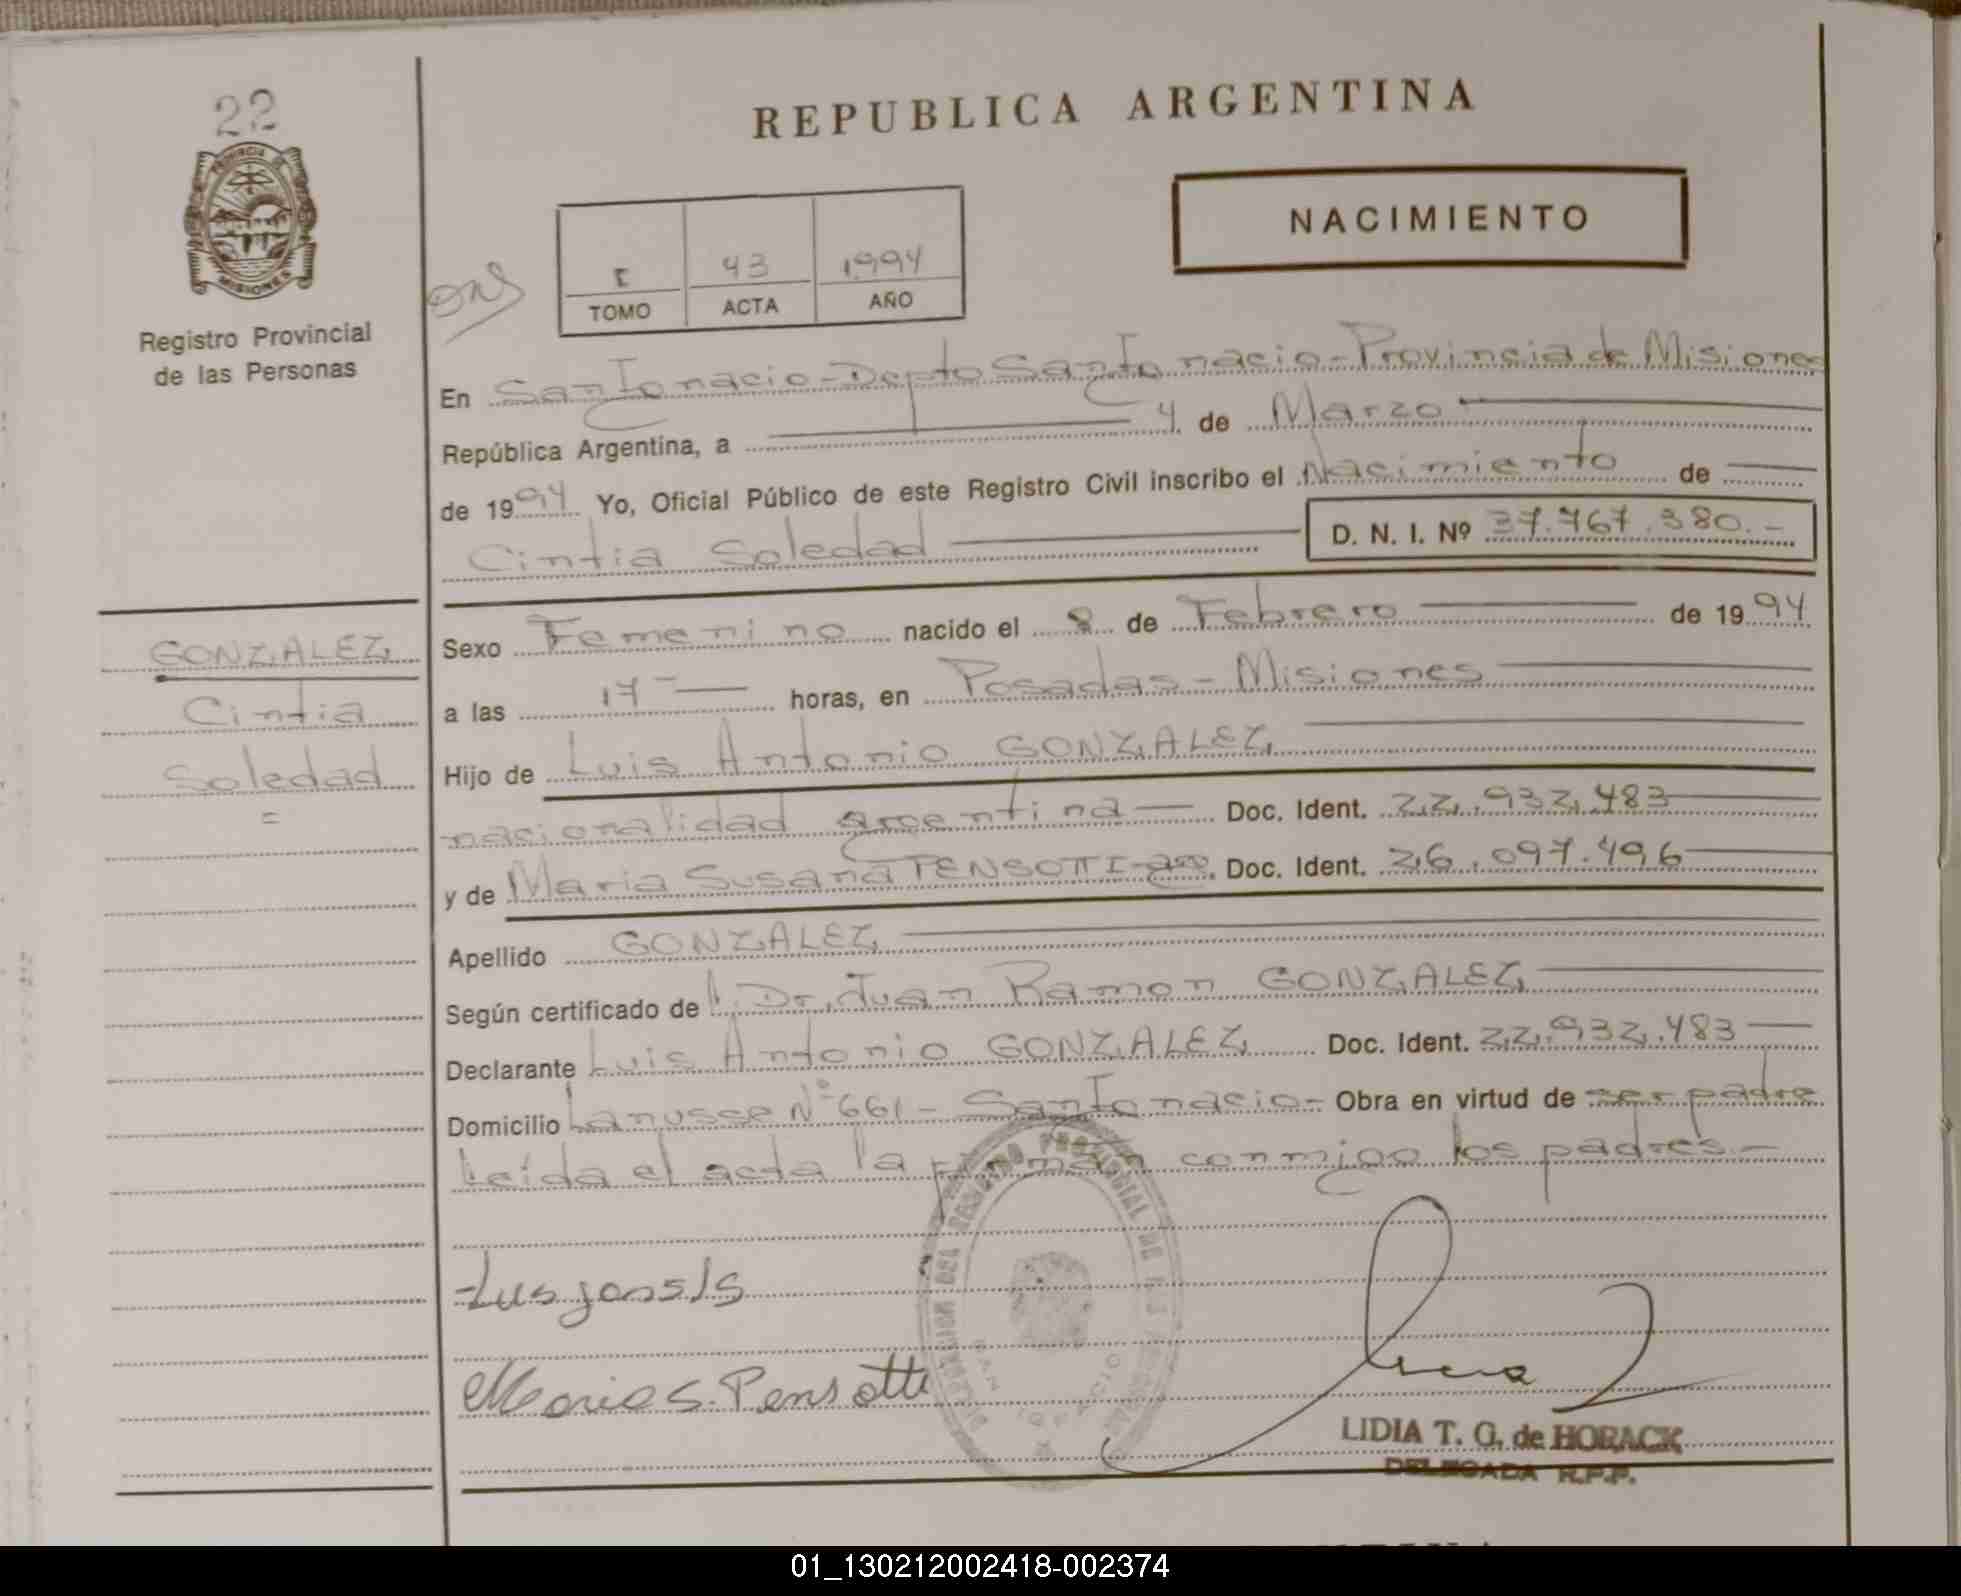 22
REPUBLICA ARGENTINA
PROVINCIA DE
MISIONES
Registro Provincial
de las Personas
NACIMIENTO
I 43 1994
TOMO ACTA AÑO
En San Ignacio - Depto San Ignacio - Provincia de Misiones
República Argentina, a 4 de Marzo
de 1994 Yo, Oficial Público de este Registro Civil inscribo el Nacimiento de
Cintia Soledad D. N. I. Nº 37.767.380.-
GONZALEZ
Cintia
Soledad
=
Sexo Femenino nacido el 8 de Febrero de 1994
a las 17 horas, en Posadas - Misiones
Hijo de Luis Antonio GONZALEZ
nacionalidad argentina Doc. Ident. 22.932.483
y de Maria Susana PENSOTTI Doc. Ident. 26.097.496
Apellido GONZALEZ
Según certificado de Dr. Juan Ramon GONZALEZ
Declarante Luis Antonio GONZALEZ Doc. Ident. 22.932.483
Domicilio Lanusse Nº 661 - San Ignacio - Obra en virtud de ser padre
Leída el acta la firman conmigo los padres.-
DELEGACION DEL REGISTRO PROVINCIAL DE
SAN IGNACIO
Maria S. Pensotti
LIDIA T. G. de HORACK
DELEGADA R.P.P.
01_130212002418-002374